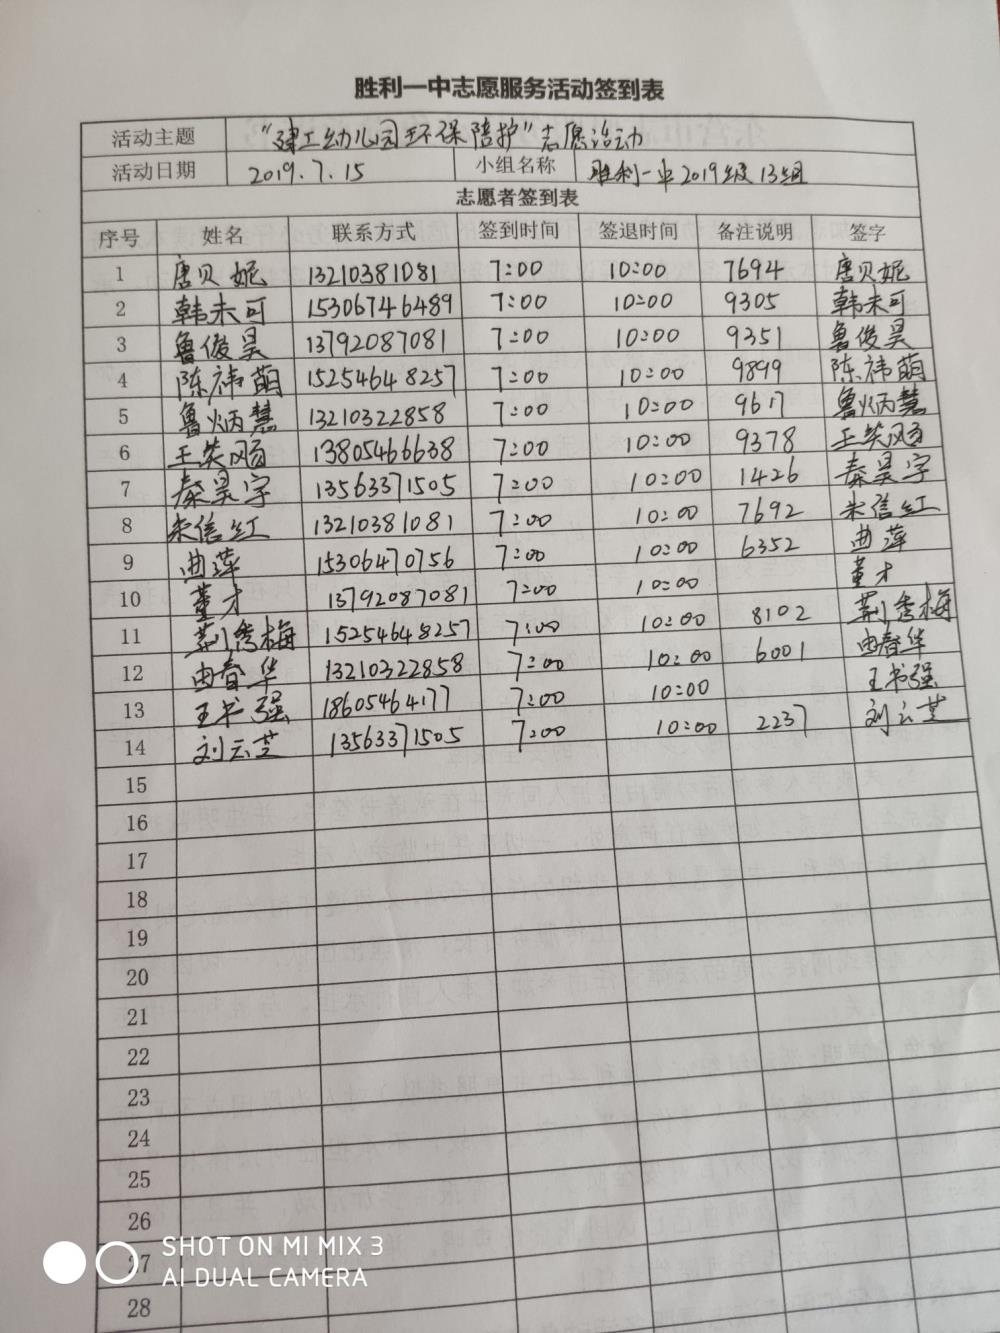 胜利一中志愿服务活动签到表
活动主题 “建工幼儿园环保陪护”志愿活动
活动日期 2019.7.15 小组名称 胜利一中2019级13组
志愿者签到表
序号 姓名 联系方式 签到时间 签退时间 备注说明 签字
1 唐贝妮 13210381081 7:00 10:00 7694 唐贝妮
2 韩未可 15306746489 7:00 10:00 9305 韩未可
3 鲁俊昊 13792087081 7:00 10:00 9351 鲁俊昊
4 陈祎萌 15254648257 7:00 10:00 9899 陈祎萌
5 鲁炳慧 13210322858 7:00 10:00 9617 鲁炳慧
6 王英飏 13805466638 7:00 10:00 9378 王英飏
7 秦昊宇 13563371505 7:00 10:00 1426 秦昊宇
8 朱信红 13210381081 7:00 10:00 7692 朱信红
9 曲萍 15306470756 7:00 10:00 6352 曲萍
10 董才 13792087081 7:00 10:00 董才
11 荆秀梅 15254648257 7:00 10:00 8102 荆秀梅
12 曲春华 13210322858 7:00 10:00 6001 曲春华
13 王书强 18605464177 7:00 10:00 王书强
14 刘云芝 13563371505 7:00 10:00 2237 刘云芝
15
16
17
18
19
20
21
22
23
24
25
26
27
28
SHOT ON MI MIX 3
AI DUAL CAMERA